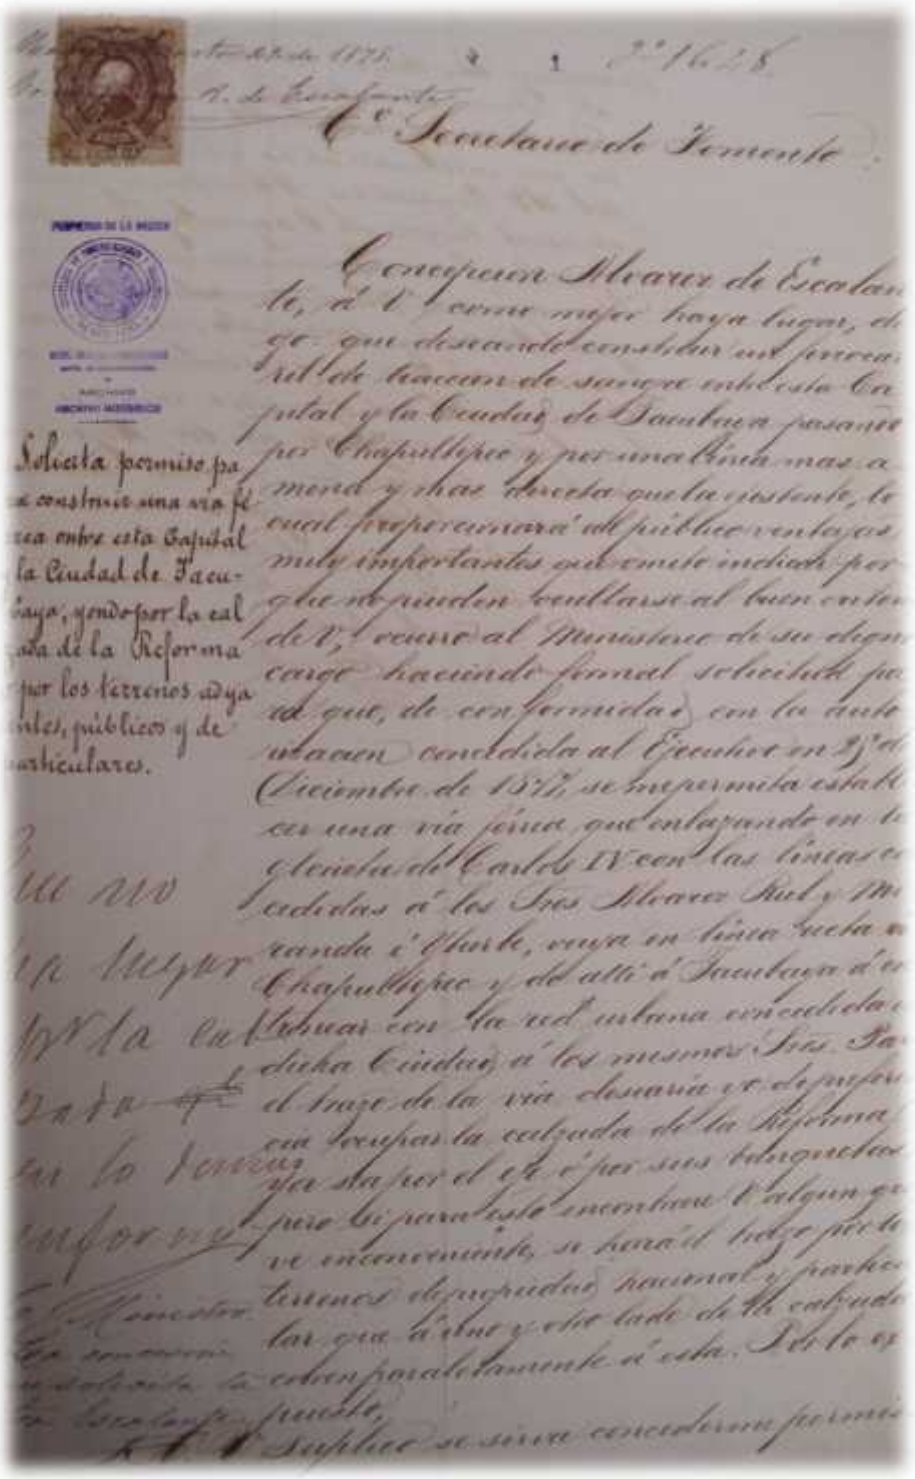 de 1878.
R. de Escalante
1
1628
C.º Secretario de Fomento.
PROPIEDAD DE LA NACION
ARCHIVO HISTORICO
Solicita permiso pa
construir una via fé
rea entre esta Capital
la Ciudad de Tacu-
baya, yendo por la cal
zada de la Reforma
por los terrenos adya
entes, públicos y de
articulares.
no
lugar
por la cal
zada
en lo demas
informe
Ministro
Concepcion Alvarez de Escalan
te, á V. como mejor haya lugar, di
go: que deseando construir un ferrocar
ril de traccion de sangre entre esta Ca
pital y la Ciudad de Tacubaya pasando
por Chapultepec y por una línea mas a
mena y mas directa que la existente, lo
cual proporcionará al público ventajas
muy importantes que omito indicar por
que no pueden ocultarse al buen enten
de V., ocurro al Ministerio de su digno
cargo haciendo formal solicitud pa
ra que, de conformidad con la auto
rizacion concedida al Ejecutivo en
Diciembre de 1877, se me permita estable
cer una vía férrea, que enlazando en la
glorieta de Carlos IV con las líneas con
cedidas á los Sres Alvarez Rul y Mi
randa é Yturbe, vaya en línea recta
Chapultepec y de allí á Tacubaya á en
troncar con la red urbana concedida
dicha Ciudad á los mismos Sres. Para
el trazo de la vía desearia yo de preferen
cia ocupar la calzada de la Reforma
ya sea por el eje ó por sus banquetas
pero si para esto encontrare V. algun gra
ve inconveniente, se hará el trazo por lo
terrenos de propiedad nacional y particu
lar que á uno y otro lado de la calzada
corren paralelamente á esta. Por lo ex
puesto,
A V. suplico se sirva concederme permis